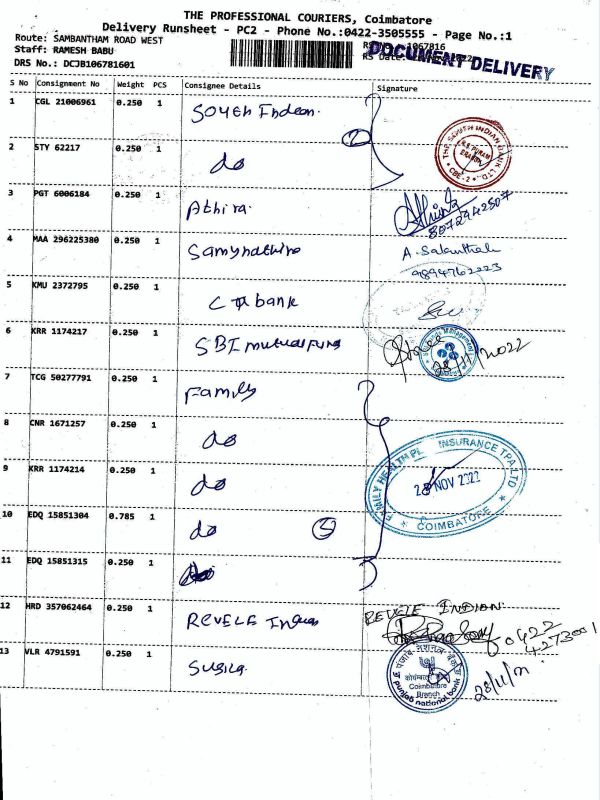 THE PROFESSIONAL COURIERS, Coimbatore
Delivery Runsheet - PC2 - Phone No.:0422-3505555 - Page No.:1
Route: SAMBANTHAM ROAD WEST
Staff: RAMESH BABU
DRS No.: DCJB106781601
DOCUMENT DELIVERY
S No Consignment No Weight PCS Consignee Details Signature
1 CGL 21006961 0.250 1 South Indean.
2 STY 62217 0.250 1 do
THE SOUTH INDIAN BANK LTD.
CBE-2
3 PGT 6006184 0.250 1 Athira.
8072942507
4 MAA 296225380 0.250 1 Samynathine
9894762223
5 KMU 2372795 0.250 1 bank
6 KRR 1174217 0.250 1 SBI mutual Fund
28/11/2022
7 TCG 50277791 0.250 1 Family
8 CNR 1671257 0.250 1 do
9 KRR 1174214 0.250 1 do
FAMILY HEALTH PLAN INSURANCE TPA LTD
28 NOV 2022
COIMBATORE
10 EDQ 15851304 0.785 1 do 5
11 EDQ 15851315 0.250 1 do
12 HRD 357062464 0.250 1 REVELE Indian
REVELE INDIAN
0422
4273001
13 VLR 4791591 0.250 1 Sugila.
पंजाब नैशनल बैंक
Coimbatore
Branch
punjab national bank
28/11/22